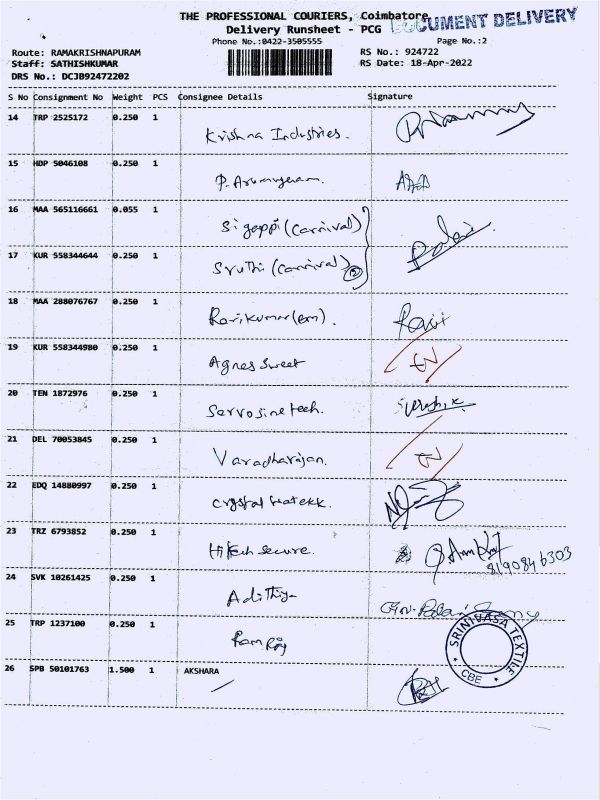 THE PROFESSIONAL COURIERS, Coimbatore
DOCUMENT DELIVERY
Delivery Runsheet - PCG
Phone No.:0422-3505555
Page No.:2
Route: RAMAKRISHNAPURAM
RS No.: 924722
Staff: SATHISHKUMAR
RS Date: 18-Apr-2022
DRS No.: DCJB92472202
S No Consignment No Weight PCS Consignee Details Signature
14 TRP 2525172 0.250 1 Krishna Industries.
15 HDP 5046108 0.250 1 P. Arumugam
16 MAA 565116661 0.055 1 Sigappi (Carnival)
17 KUR 558344644 0.250 1 Sruthi (Carnival) 2
18 MAA 288076767 0.250 1 Ravikumar (BM). Ravi
19 KUR 558344980 0.250 1 Agnes Sweet
20 TEN 1872976 0.250 1 Servosine tech.
21 DEL 70053845 0.250 1 Varadharajan.
22 EDQ 14880997 0.250 1 Crystal
23 TRZ 6793852 0.250 1 Hitech Secure.
8190846303
24 SVK 10261425 0.250 1 Adithiya
25 TRP 1237100 0.250 1 Ram Raj
SRINIVASA TEXTILE
CBE
26 SPB 50101763 1.500 1 AKSHARA